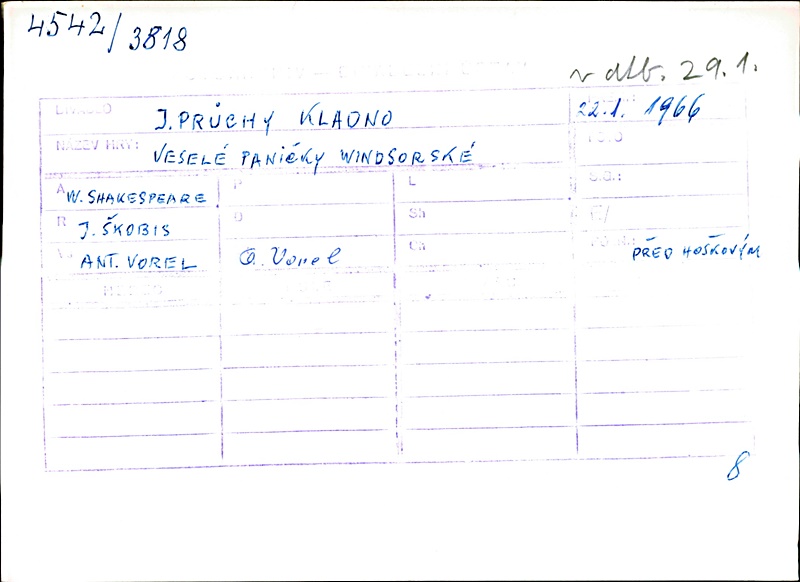 4542/3818
v dlb. 29.1.
DIVADLO J. PRŮCHY KLADNO 22.1. 1966
NÁZEV HRY: VESELÉ PANIČKY WINDSORSKÉ
A W. SHAKESPEARE P L S.G.:
R J. ŠKOBIS D Sh
ANT. VOREL A. Vorel Ch PŘED HOŠKOVÝM
8